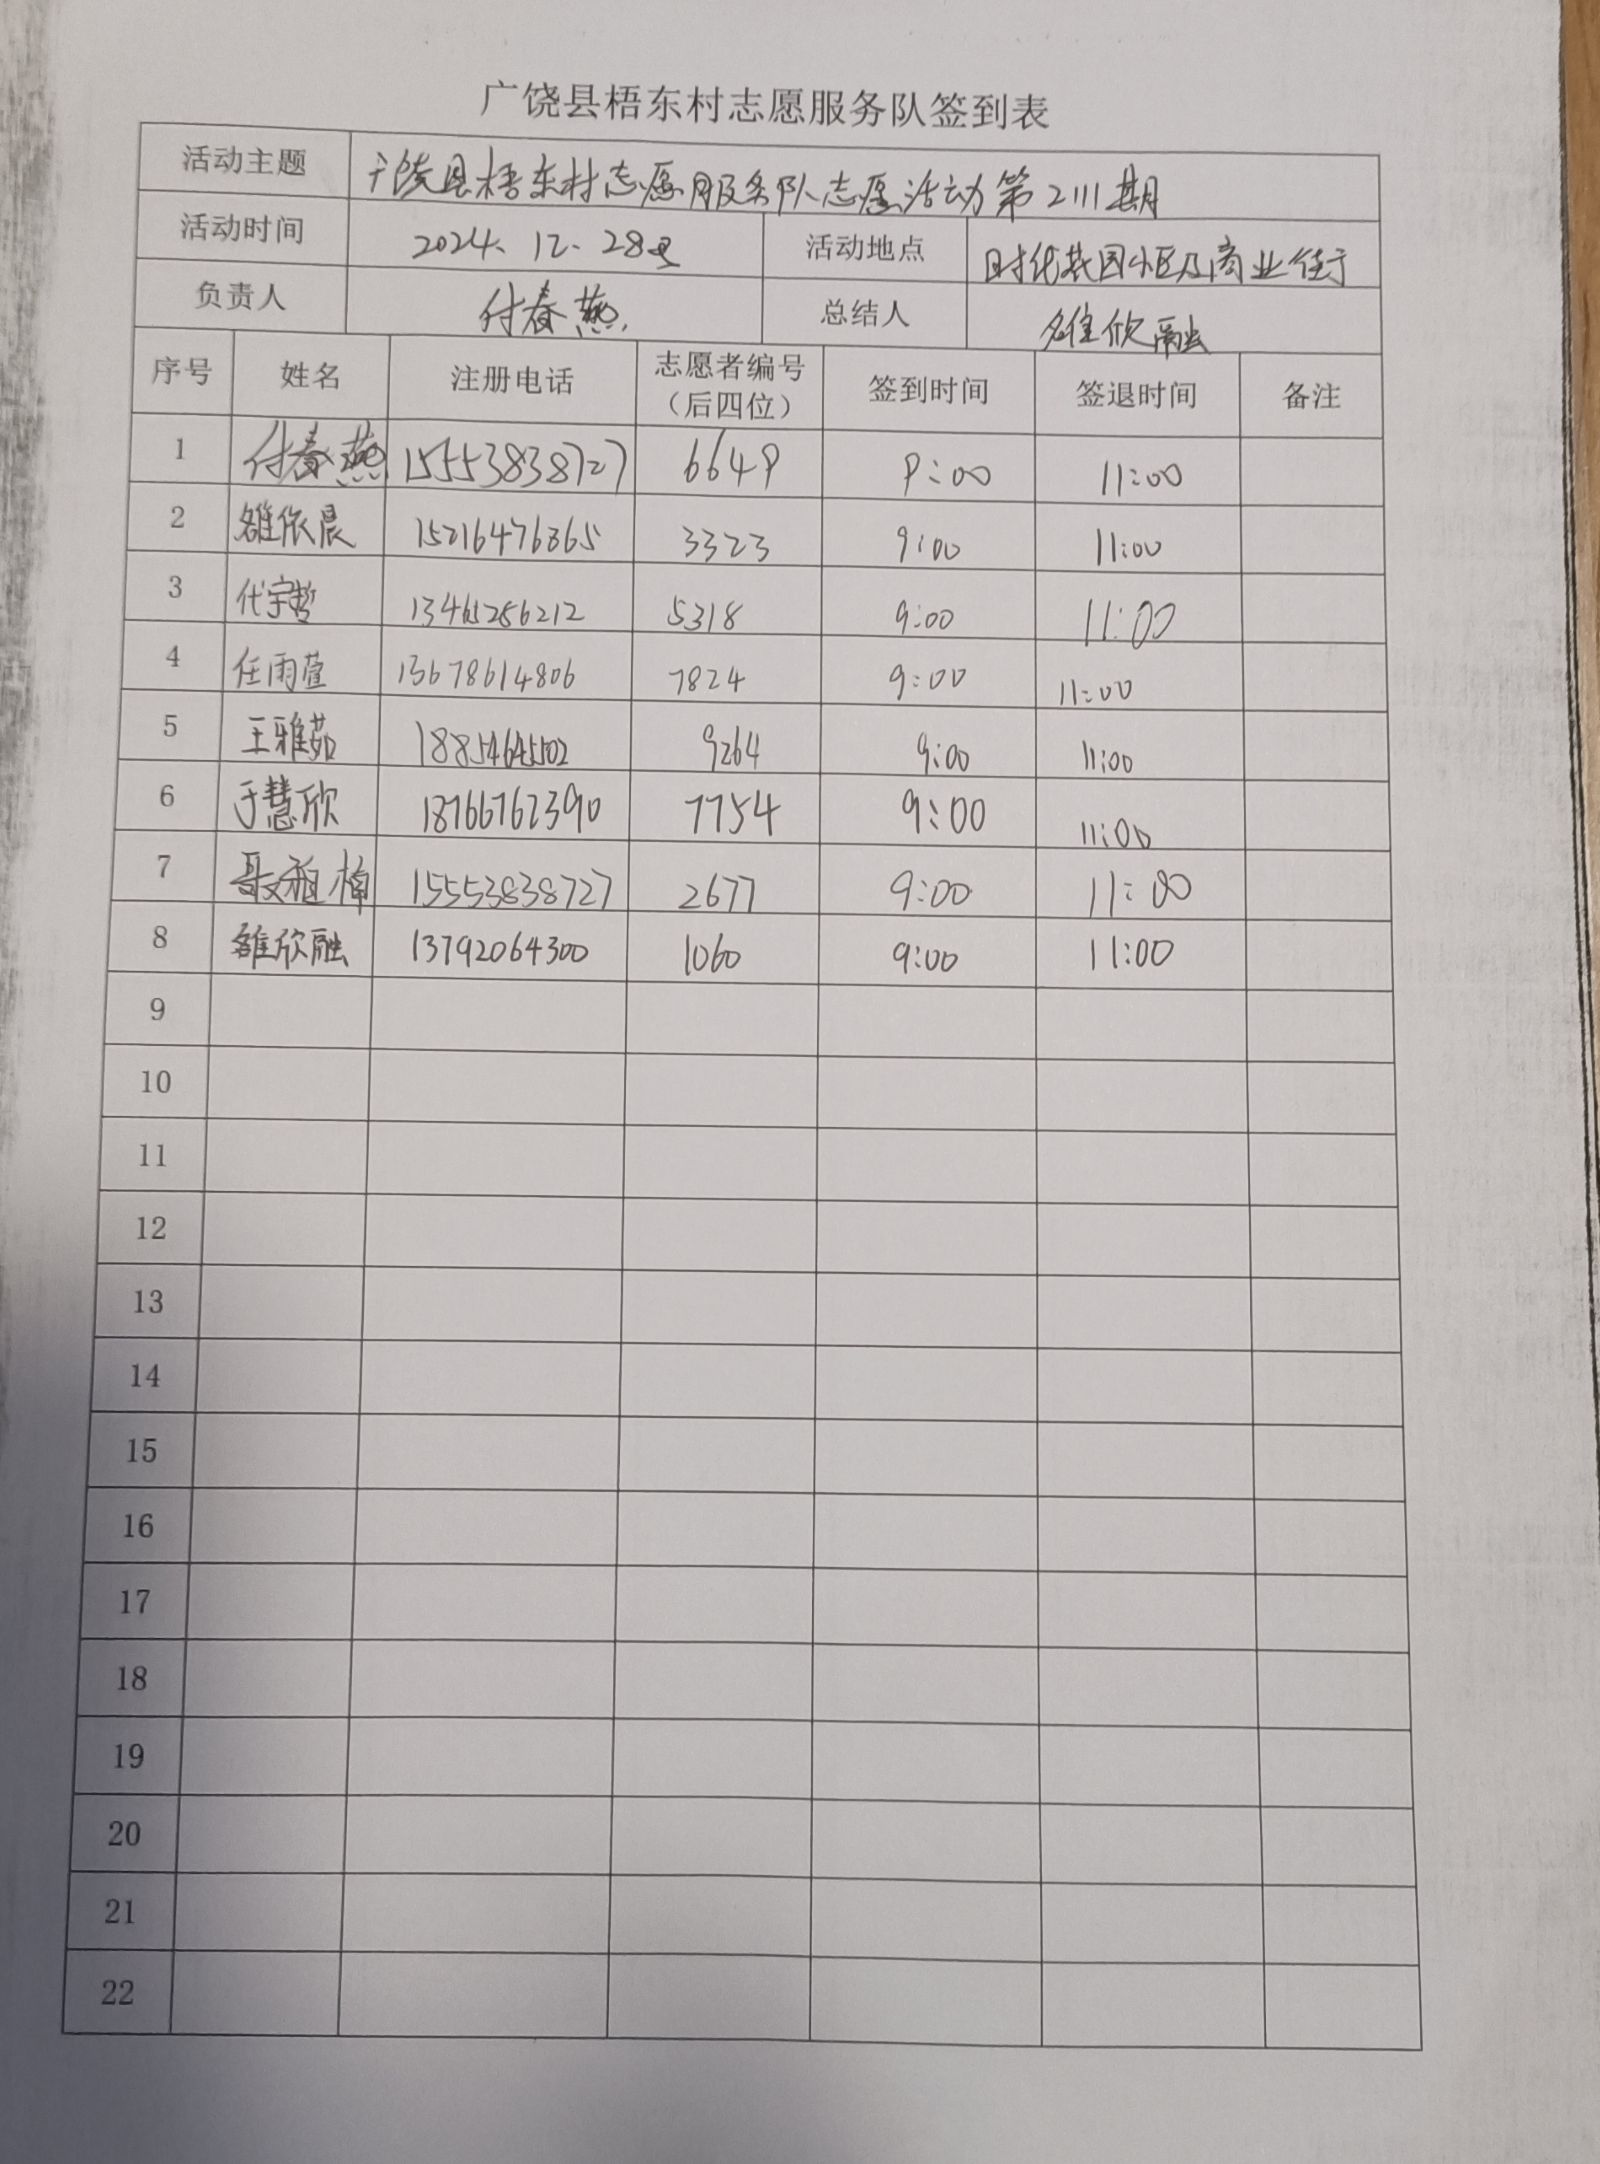 广饶县梧东村志愿服务队签到表
活动主题 广饶县梧东村志愿服务队志愿活动第2111期
活动时间 2024、12、28号 活动地点 时代花园小区及商业住于
负责人 付春燕 总结人 雒欣融
序号 姓名 注册电话 志愿者编号（后四位） 签到时间 签退时间 备注
1 付春燕 15553838727 6649 9:00 11:00
2 雒依晨 15216476365 3323 9:00 11:00
3 代宇哲 13465286212 5318 9:00 11:00
4 任雨萱 13678614806 7824 9:00 11:00
5 王雅茹 18854645502 9264 9:00 11:00
6 于慧欣 18766762390 7754 9:00 11:00
7 15553838727 2677 9:00 11:00
8 雒欣融 13792064300 1060 9:00 11:00
9
10
11
12
13
14
15
16
17
18
19
20
21
22